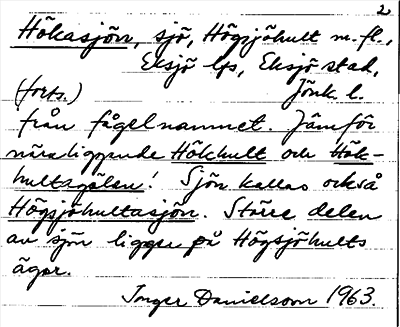 2.
Hökasjön, sjö, Högsjöhult m.fl.,
Eksjö lfs, Eksjö stad,
(forts.) Jönk. l.
från fågelnamnet. Jämför
närliggande Hökhult och Hök-
hultsgölen! Sjön kallas också
Högsjöhultasjön. Större delen
av sjön ligger på Högsjöhults
ägor.
Inger Danielsson 1963.